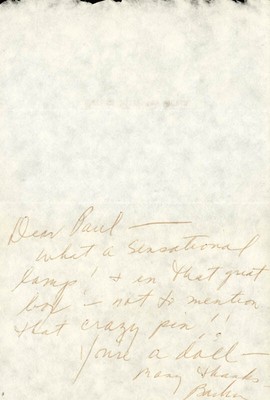 Dear Paul —
What a sensational
lamp! & in that great
box — not to mention
that crazy pin!!
You're a doll —
Many thanks